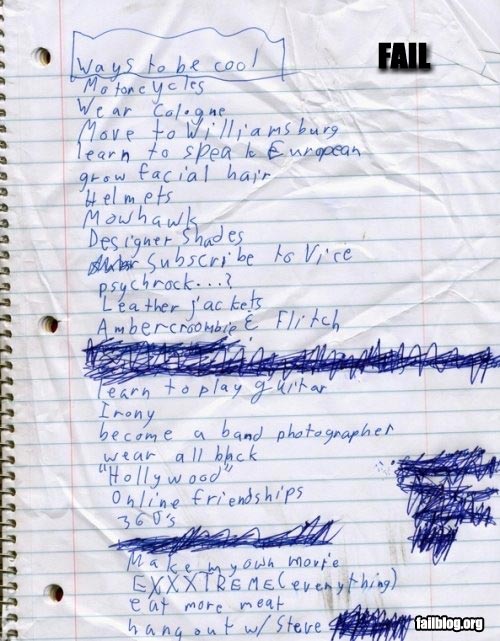 FAIL
Ways to be cool
Motorcycles
Wear Cologne
Move to Williamsburg
learn to speak European
grow facial hair
Helmets
Mowhawk
Designer Shades
Subscribe to Vice
psychrock...?
Leather jackets
Ambercroombie & Flitch
learn to play guitar
Irony
become a band photographer
wear all back
"Hollywood"
Online friendships
360's
Make my own movie
EXXXTREME (everything)
eat more meat
hang out w/ Steve
failblog.org